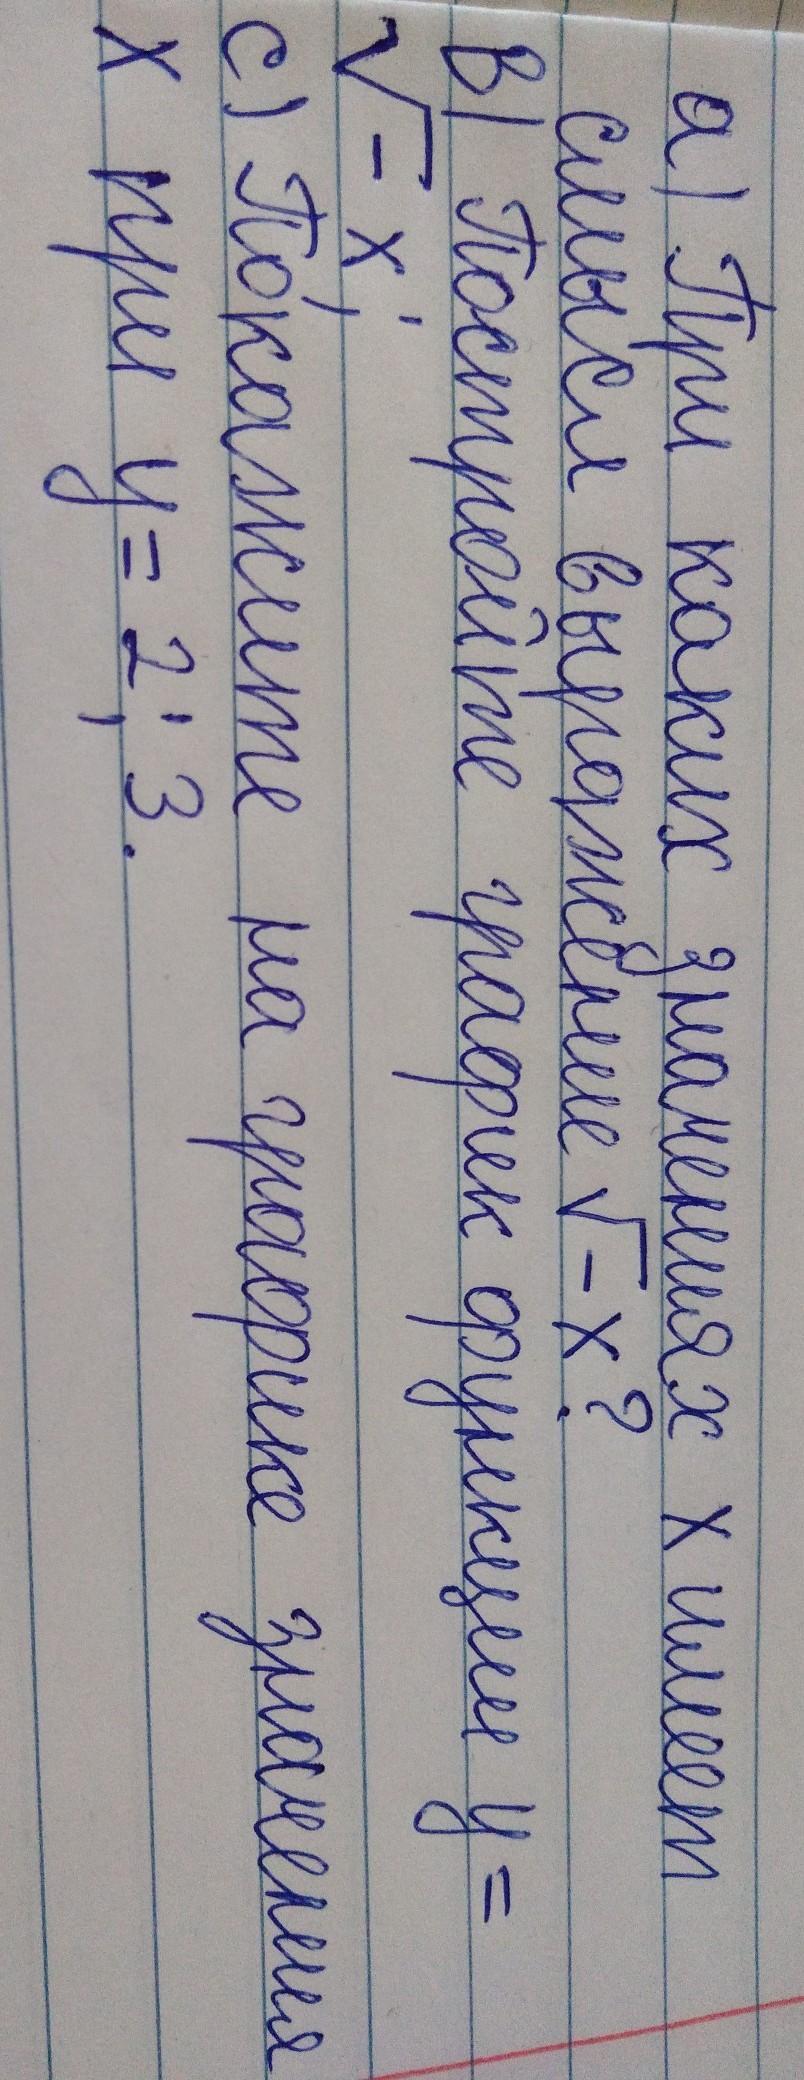 а) При каких значениях х имеет
смысл выражение √-х?
в) Постройте график функции у =
√-х;
с) Покажите на графике значения
х при у = 2; 3.